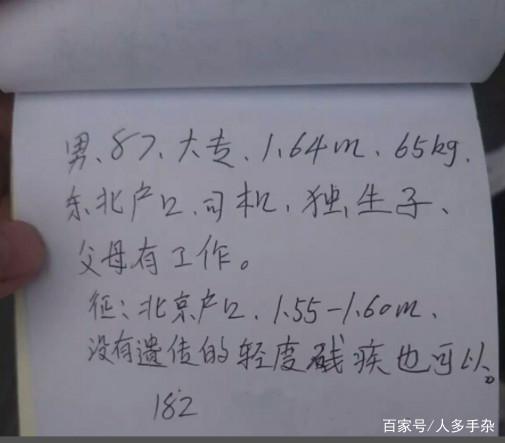 男、87、大专、1.64m、65kg、
东北户口、司机、独生子、
父母有工作。
征：北京户口、1.55-1.60m、
没有遗传的轻度残疾也可以。
182
百家号/人多手杂